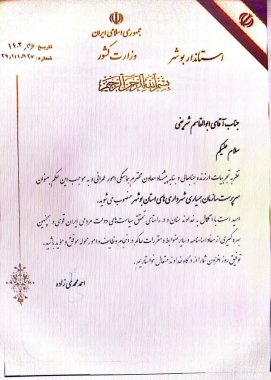 جمهوری اسلامی ایران
وزارت کشور
استاندار بوشهر
تاریخ:
شماره:
بسم الله الرحمن الرحیم
جناب آقای ابوالقاسم شریفی
سلام علیکم
نظر به تجربیات ارزنده جنابعالی و بنا به پیشنهاد معاون محترم هماهنگی امور عمرانی و به موجب این حکم به عنوان
سرپرست سازمان همیاری شهرداری های استان بوشهر منصوب می شوید.
امید است با اتکال به خداوند منان و در راستای تحقق سیاست های دولت مردمی ایران قوی و همچنین
بهره گیری از مفاد اساسنامه و سایر ضوابط و مقررات حاکم در انجام وظایف و امور محوله موفق و موید باشید.
توفیق روز افزون شما را از درگاه خداوند متعال خواستاریم.
احمد محمدی زاده